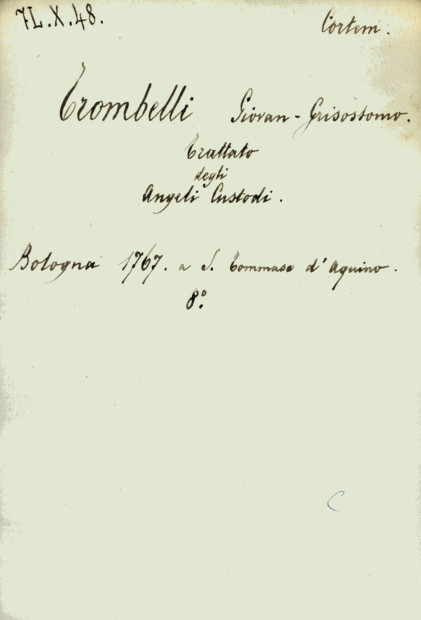 71.X.48.
Cortem.
Trombelli Giovan-Grisostomo.
Trattato
degli
Angeli Custodi.
Bologna 1767. a S. Tommaso d'Aquino.
8º
C